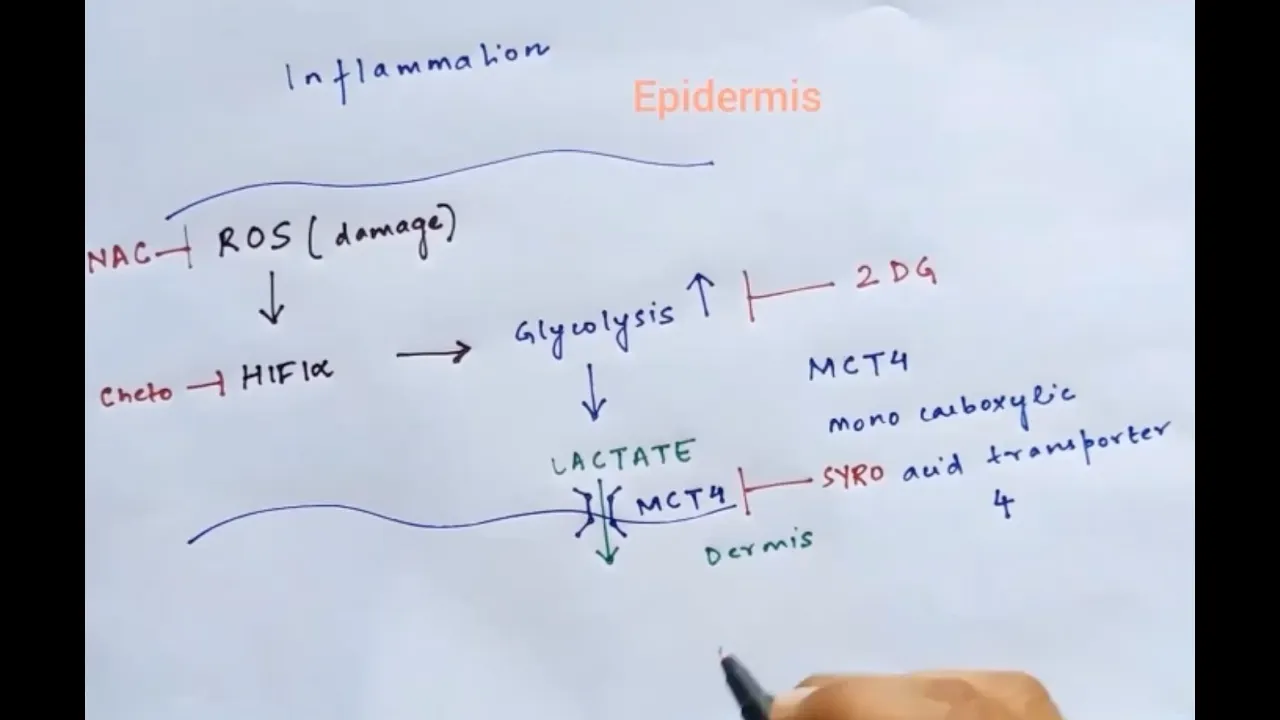 Inflammation
Epidermis
NAC ROS (damage)
2DG
Glycolysis ↑
Cheto HIF1α
MCT4
mono carboxylic
LACTATE
SYRO acid transporter
MCT4
4
Dermis